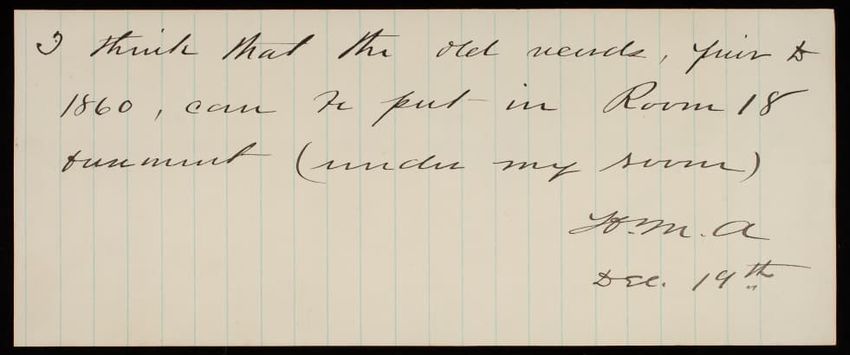 I think that the old records, prior to
1860, can be put in Room 18
basement (under my room)
H. M. A
Dec. 19th